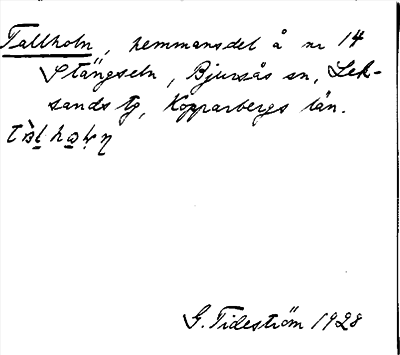 Tallholn, hemmansdel å nr 14
Stängseln, Bjursås sn, Lek-
sands tg, Kopparbergs län.
G. Tideström 1928